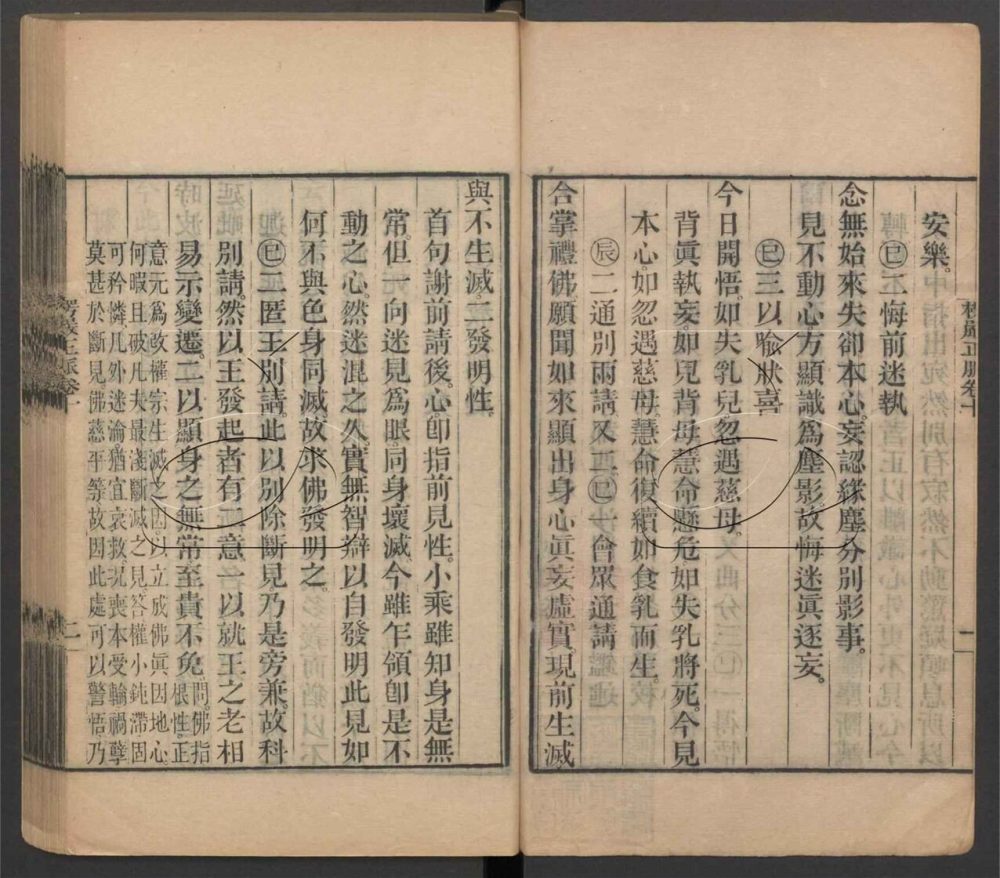 安樂。
㊂二悔前迷執
念無始來失卻本心。妄認緣塵分別影事。
見不動心方顯識爲塵影。故悔迷眞逐妄。
㊂三以喻狀喜
今日開悟。如失乳兒。忽遇慈母。
背眞執妄。如兒背母。慧命懸危。如失乳將死。今見
本心。如忽遇慈母。慧命復續。如食乳而生。
二通別兩請。又二。㊂一沙會眾通請
合掌禮佛。願聞如來顯出身心眞妄虛實。現前生滅
與不生滅。二發明性。
首句謝前請後。心。卽指前見性。小乘雖知身是無
常。但一向迷見爲眼。同身壞滅。今雖乍領卽是不
動之心。然迷混之久。實無智辯以自發明此見如
何不與色身同滅。故求佛發明之。
㊂二匿王別請。此以別除斷見。乃是旁兼。故科
別請。然以王發起者有二意。一以就王之老相
易示變遷。二以顯身之無常至貴不免。問。佛指
根性。正
意元爲改權宗生滅之因。以立成佛眞因地心。
何暇且破凡夫最淺斷滅之見。答。權小鈍滯。固
可矜憐。凡外迷淪。猶宜哀救。況喪本受輪。禍孽
莫甚於斷見。佛慈平等。故因此處可以警悟。乃
楞嚴正脈卷十
一
二